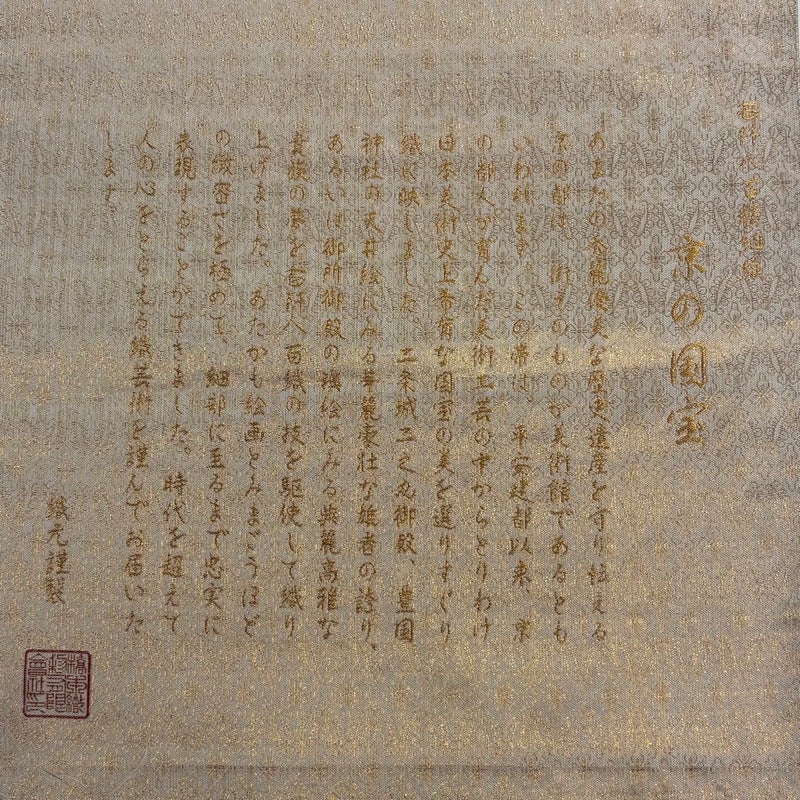 京の国宝
あまたの秀麗優美な歴史遺産を守り伝える
京の都は、街そのものが美術館であるとも
いわれます。この帯は、平安建都以来、京
の都人が育んだ美術工芸の中からとりわけ
日本美術史上希有な国宝の美を選りすぐり
織に映しました。二条城二之丸御殿、豊国
神社の天井絵にみる華麗豪壮な雄者の誇り、
あるいは御所御殿の襖絵にみる典麗高雅な
貴族の夢を西陣八百織の技を駆使して織り
上げました、あたかも絵画とみまごうほど
の緻密さを極めて、細部に至るまで忠実に
表現することができました。時代を超えて
人の心をとらえる織芸術を謹んでお届いた
します。
織元謹製